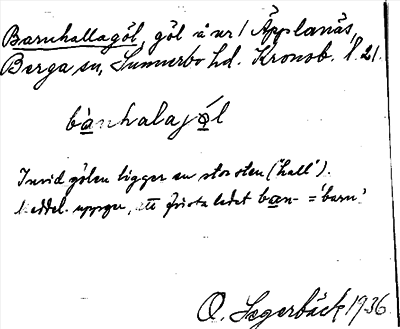 Barnhallagöl, göl å nr 1 Äpplanäs,
Berga sn, Sunnerbo hd. Kronob. l. 21.
bànhalajọ́l
Invid gölen ligger en stor sten ('hall').
Meddel. uppger, att första ledet ban- = 'barn'.
O. Segerbäck 1936